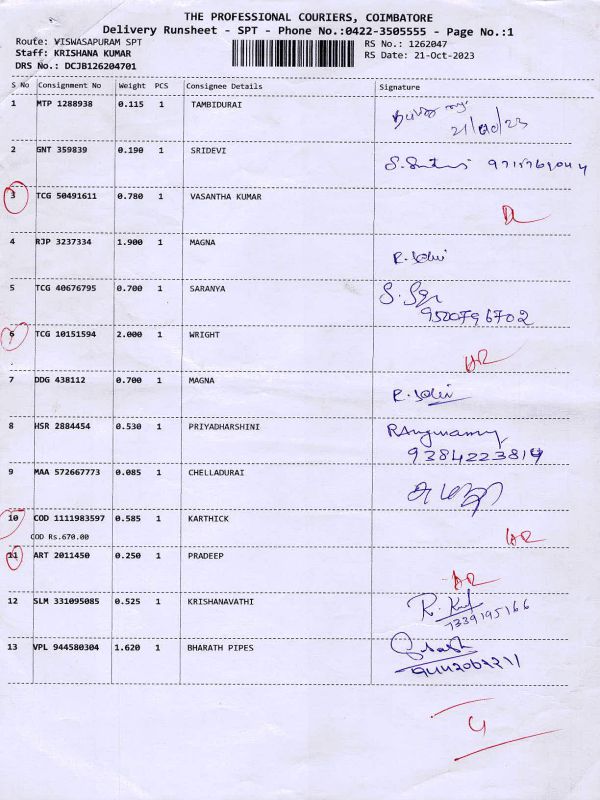 THE PROFESSIONAL COURIERS, COIMBATORE
Delivery Runsheet - SPT - Phone No.:0422-3505555 - Page No.:1
Route: VISWASAPURAM SPT RS No.: 1262047
Staff: KRISHANA KUMAR RS Date: 21-Oct-2023
DRS No.: DCJB126204701
S No Consignment No Weight PCS Consignee Details Signature
1 MTP 1288938 0.115 1 TAMBIDURAI
21/10/23
2 GNT 359839 0.190 1 SRIDEVI
3 TCG 50491611 0.780 1 VASANTHA KUMAR
4 RJP 3237334 1.900 1 MAGNA
5 TCG 40676795 0.700 1 SARANYA
9500796702
6 TCG 10151594 2.000 1 WRIGHT
AR
7 DDG 438112 0.700 1 MAGNA
8 HSR 2884454 0.530 1 PRIYADHARSHINI
9384223814
9 MAA 572667773 0.085 1 CHELLADURAI
10 COD 1111983597 0.585 1 KARTHICK
COD Rs.670.00
AR
11 ART 2011450 0.250 1 PRADEEP
AR
12 SLM 331095085 0.525 1 KRISHANAVATHI
7339195166
13 VPL 944580304 1.620 1 BHARATH PIPES
4